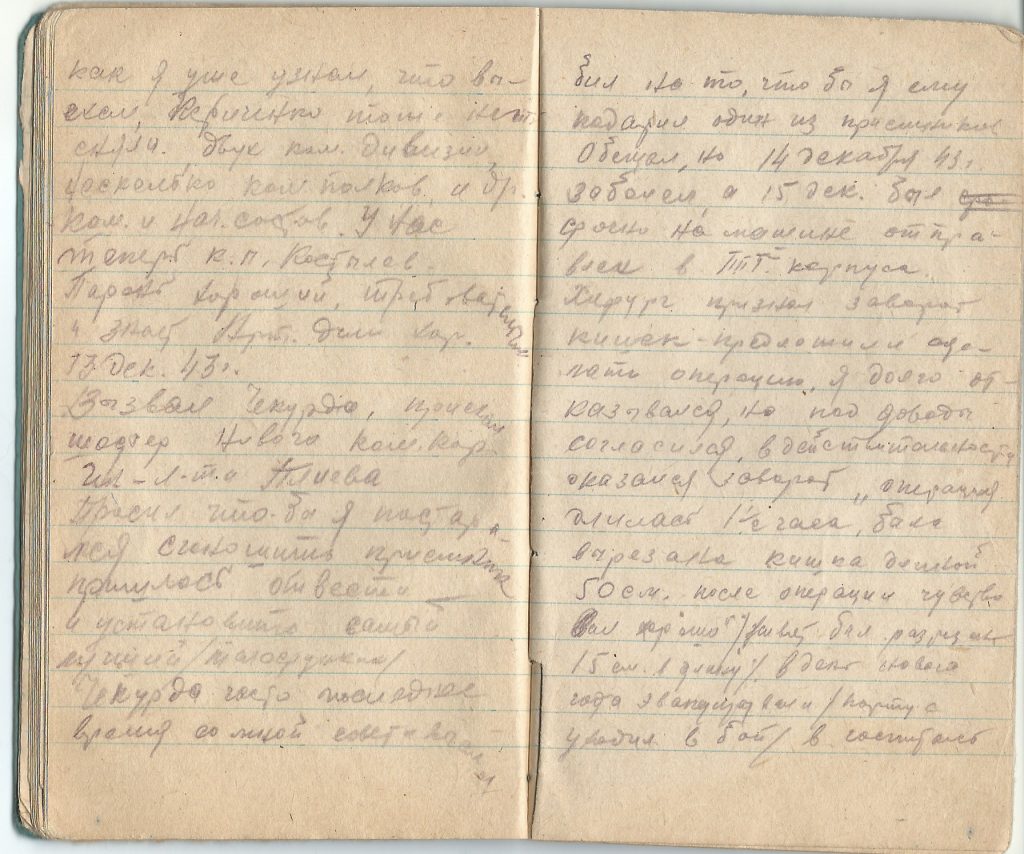 как я уже узнал, что вы-
ехал, Кириченко тоже нет
сняли. Двух ком. дивизии,
несколько ком. полков, и др.
ком. и нач. состав. У нас
теперь к.п. Костылев.
Парень хороший, требовательный
и знает Арт. дело хор.
13 дек. 43 г.
Вызвал Чекурда, приехал
шофер нового ком. кор.
Ген-л-та Плиева
Просил что-бы я постара-
лся приемник
пришлось отвести
и установить самый
лучший /телефункен/
Чекурда часто последнее
время со мной советывался
бил на то, что бы я ему
подарил один из приемников
Обещал, но 14 декабря 43 г.
заболел, а 15 дек. был
срочно на машине отпра-
влен в ППГ корпуса.
Хирург признал заворот
кишек-предложили сде-
лать операцию, я долго от-
казывался, но под доводы
согласился, в действительности
оказался заворот, операция
длилась 1½ часа, была
вырезана кишка длиной
50 см. после операции чувство
вал хорошо /живот был разрезан
15 см. в длину/ в день нового
года эвакуировали /корпус
уходил в бой/ в госпиталь